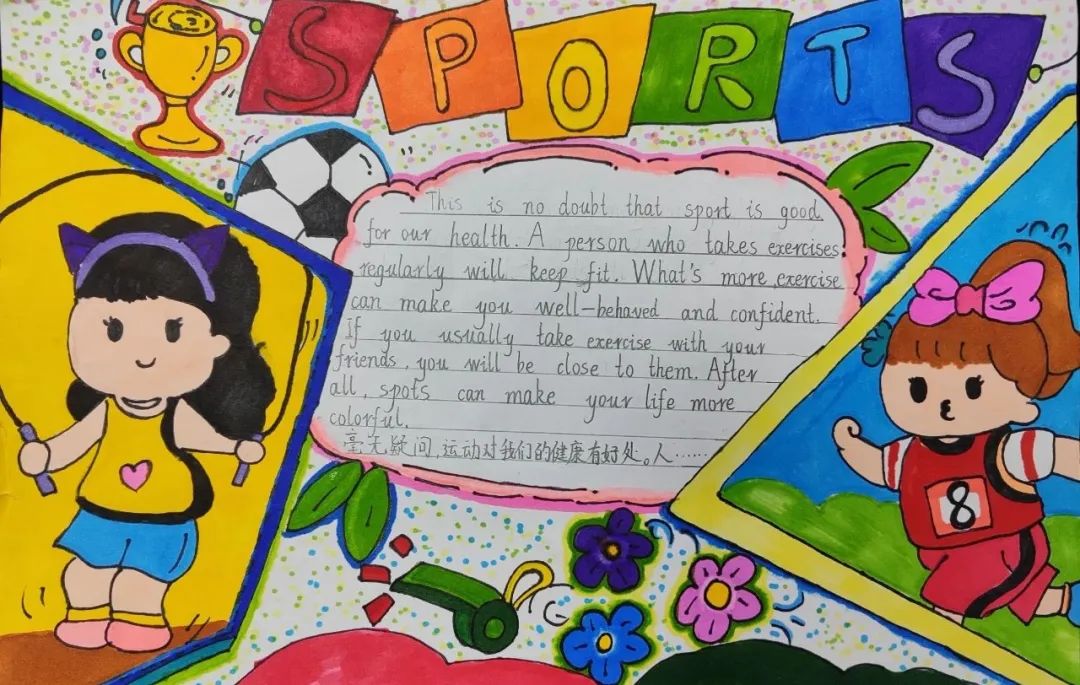 SPORTS
This is no doubt that sport is good
for our health. A person who takes exercises
regularly will keep fit. What's more, exercise
can make you well-behaved and confident.
If you usually take exercise with your
friends, you will be close to them. After
all, spots can make your life more
colorful.
毫无疑问,运动对我们的健康有好处。人……
8